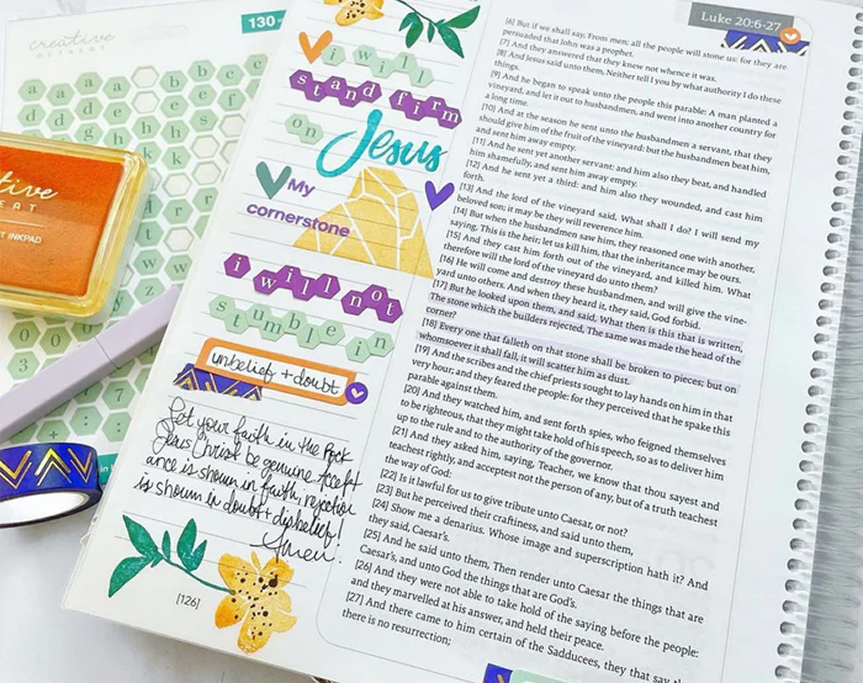 creative
RETREAT
130
a a a b b c c
d d d e e f
g h h s
k k
r r
w w
y z
0 0
3
7
+ :
tive
EAT
T INKPAD
i will
stand firm
on
Jesus
My
cornerstone
i will not
stumble in
unbelief + doubt
Let your faith in the Rock
Jesus Christ be genuine. Accept
ance is shown in faith, rejection
is shown in doubt + disbelief!
Amen.
[126]
Luke 20:6-27
[6] But if we shall say, From men; all the people will stone us: for they are
persuaded that John was a prophet.
[7] And they answered that they knew not whence it was.
[8] And Jesus said unto them, Neither tell I you by what authority I do these
things.
[9] And he began to speak unto the people this parable: A man planted a
vineyard, and let it out to husbandmen, and went into another country for
a long time.
[10] And at the season he sent unto the husbandmen a servant, that they
should give him of the fruit of the vineyard: but the husbandmen beat him,
and sent him away empty.
[11] And he sent yet another servant: and him also they beat, and handled
him shamefully, and sent him away empty.
[12] And he sent yet a third: and him also they wounded, and cast him
forth.
[13] And the lord of the vineyard said, What shall I do? I will send my
beloved son; it may be they will reverence him.
[14] But when the husbandmen saw him, they reasoned one with another,
saying, This is the heir; let us kill him, that the inheritance may be ours.
[15] And they cast him forth out of the vineyard, and killed him. What
therefore will the lord of the vineyard do unto them?
[16] He will come and destroy these husbandmen, and will give the vine-
yard unto others. And when they heard it, they said, God forbid.
[17] But he looked upon them, and said, What then is this that is written,
The stone which the builders rejected, The same was made the head of the
corner?
[18] Every one that falleth on that stone shall be broken to pieces; but on
whomsoever it shall fall, it will scatter him as dust.
[19] And the scribes and the chief priests sought to lay hands on him in that
very hour; and they feared the people: for they perceived that he spake this
parable against them.
[20] And they watched him, and sent forth spies, who feigned themselves
to be righteous, that they might take hold of his speech, so as to deliver him
up to the rule and to the authority of the governor.
[21] And they asked him, saying, Teacher, we know that thou sayest and
teachest rightly, and acceptest not the person of any, but of a truth teachest
the way of God:
[22] Is it lawful for us to give tribute unto Caesar, or not?
[23] But he perceived their craftiness, and said unto them,
[24] Show me a denarius. Whose image and superscription hath it? And
they said, Caesar's.
[25] And he said unto them, Then render unto Caesar the things that are
Caesar's, and unto God the things that are God's.
[26] And they were not able to take hold of the saying before the people:
and they marvelled at his answer, and held their peace.
[27] And there came to him certain of the Sadducees, they that say
there is no resurrection;